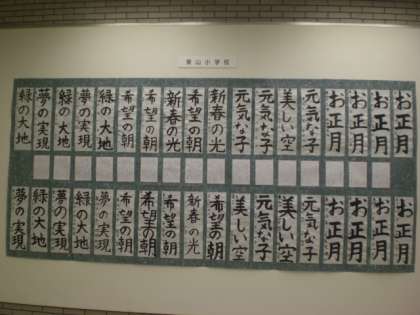 山小学校
お正月
お正月
お正月
お正月
元気な子
美しい空
元気な子
元気な子
新春の光
希望の朝
新春の光
希望の朝
希望の朝
緑の大地
夢の実現
緑の大地
夢の実現
緑の大地
お正月
お正月
お正月
お正月
元気な子
美しい空
元気な子
美しい空
希望の朝
新春の光
希望の朝
希望の朝
希望の朝
夢の実現
緑の大地
夢の実現
緑の大地
夢の実現